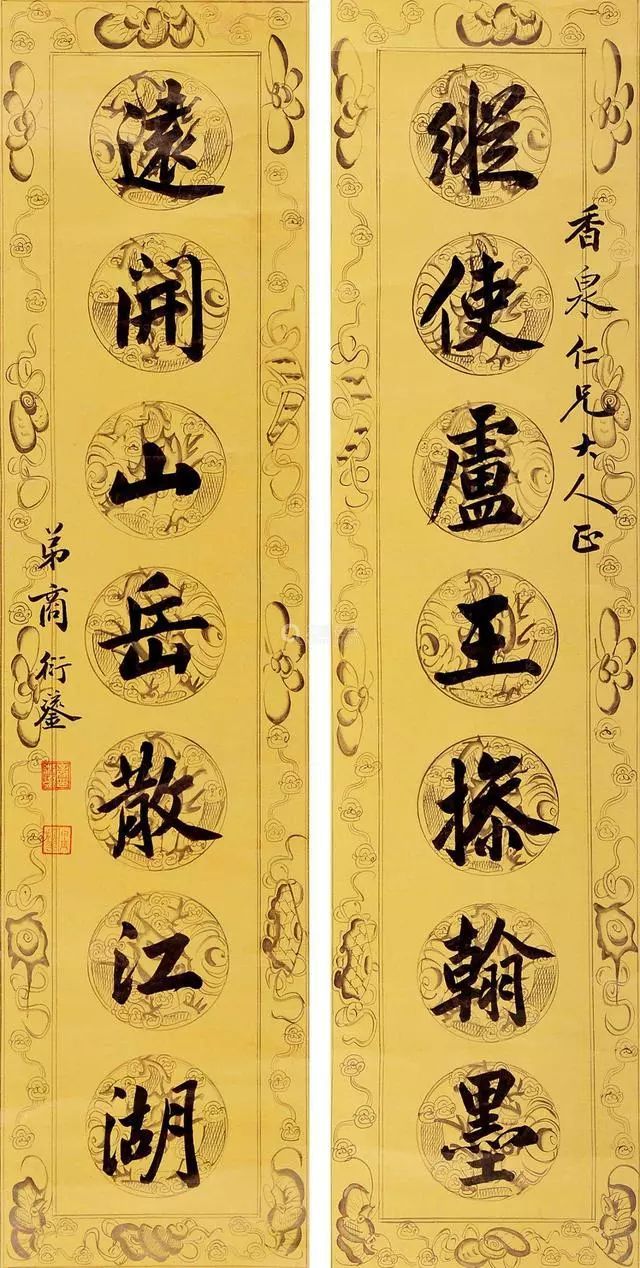 縱使盧王摻翰墨
香泉仁兄大人正
遠開山岳散江湖
弟商衍鎏